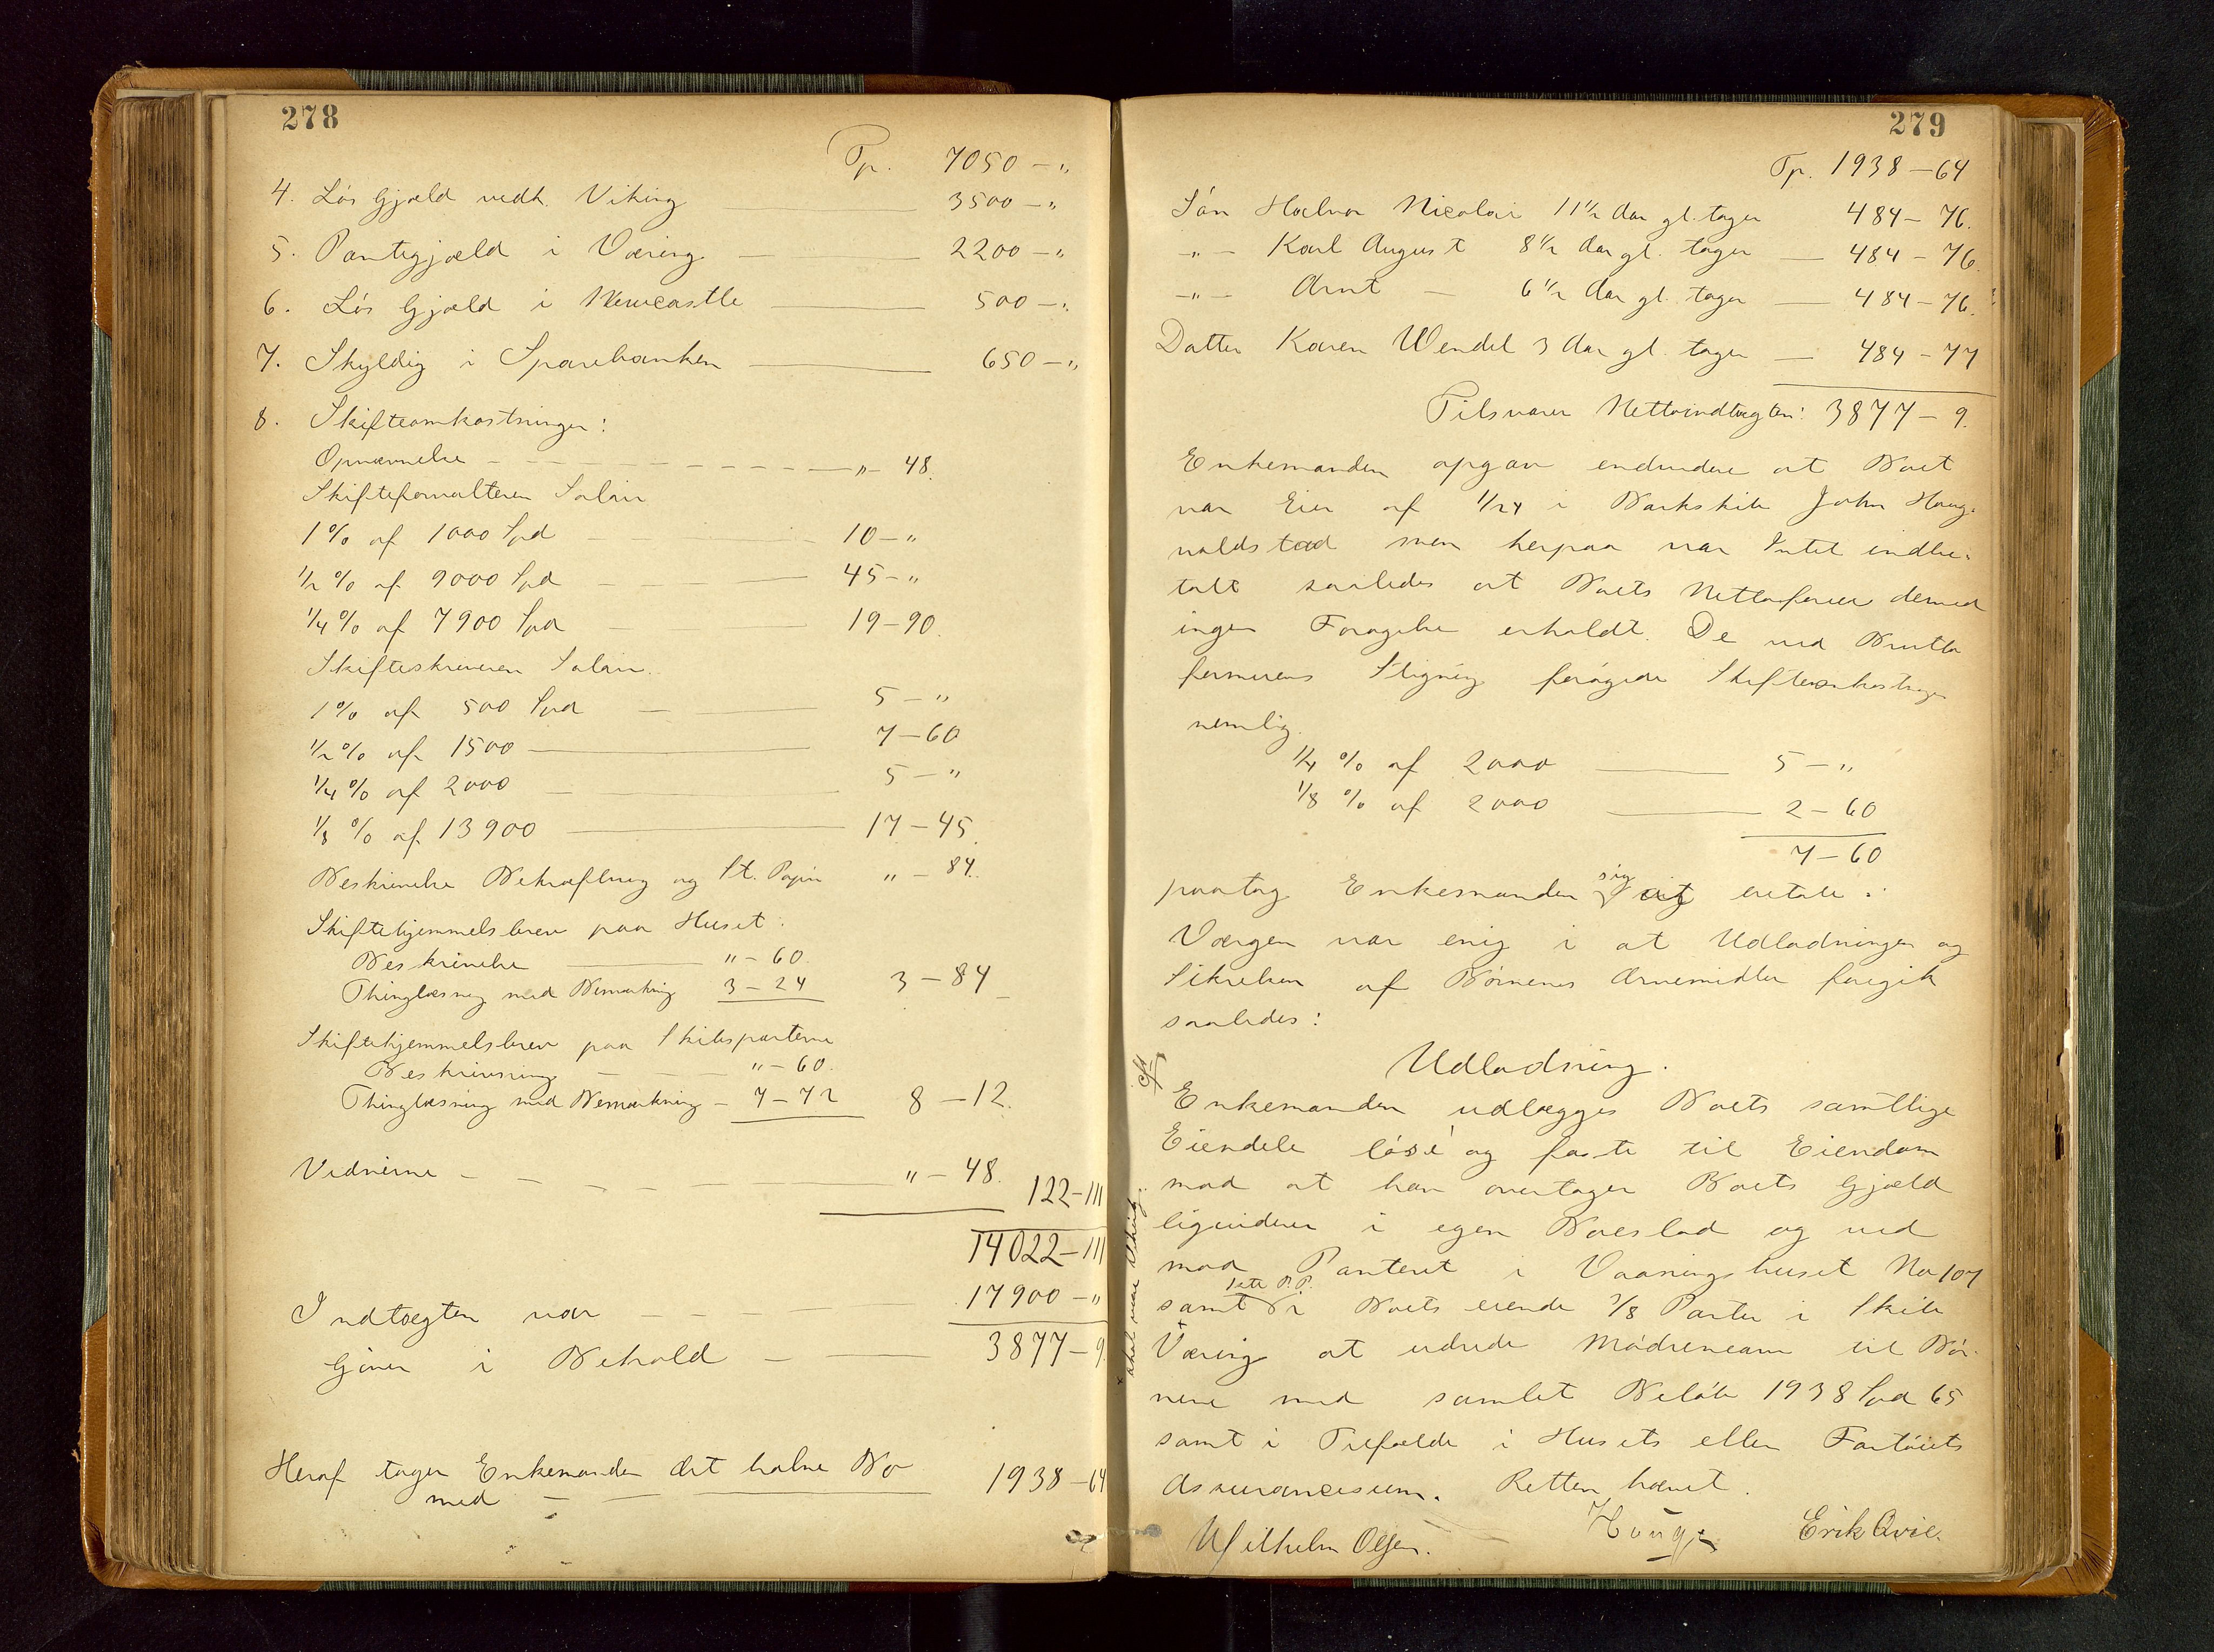 278
Tp. 7050 – "
4. Løs Gjæld vedk. Viking 3500 – "
5. Pantegjæld i Væring 2200 – "
6. Løs Gjæld i Newcastle 500 – "
7. Skyldig i Sparebanken 650 – "
8. Skifteomkostninger:
Opnævnelse " – 48.
Skifteforvalteren Salair
1 % af 1000 Spd 10 – "
1/2 % af 9000 Spd 45 – "
1/4 % af 7900 Spd 19 – 90.
Skifteskriveren Salair.
1 % af 500 Spd 5 – "
1/2 % af 1500 7 – 60
1/4 % af 2000 5 – "
1/8 % af 13900 17 – 45.
Beskrivelse Bekræftning og St. Papir " – 84.
Skiftehjemmelsbrev paa Huset:
Beskrivelse " – 60.
Thinglæsning med Bemærkning 3 – 24 3 – 84
Skiftehjemmelsbrev paa Skibsparterne
Beskrivning " – 60.
Thinglæsning med Bemærkning – 7 – 72 8 – 12.
Vidnerne " – 48.
122 – 111
14022 – 111
Indtægten var 17900 – "
Giver i Behold 3877 – 9.
Heraf tager Enkemanden det halve Bo
med 1938 – 64
279
Tp. 1938 – 64
Søn Halvor Nicolai 11 1/2 Aar gl. tager 484 – 76.
– " – Karl August 8 1/2 Aar gl. tager 484 – 76.
– " – Arnt – 6 1/2 Aar gl. tager 484 – 76.
Datter Karen Wendel 3 Aar gl. tager 484 – 77
Tilsvarer Nettoindtægten: 3877 – 9.
Enkemanden opgav endvidere at Boet
var Eier af 1/24 i Barkskib John Haug-
valdstad men herpaa var Intet indbe-
talt saaledes at Boets Nettoformue dermed
ingen Forøgelse erholdt. De ved Brutto
formuens Stigning forøgede Skifteomkostninger
nemlig.
1/4 % af 2000 5 – "
1/8 % af 2000 2 – 60
7 – 60
paatog Enkemanden sig at betale.
Værgen var enig i at Udlodningen og
Sikrelsen af Børnenes Arvemidler foregik
saaledes:
Udlodning.
Enkemanden udlægges Boets samtlige
Eiendele løse og faste til Eiendom
mod at han overtager Boets Gjæld
ligesom i egen Boeslod og ved
mod Panteret i Vaaningshuset No 107
samt i Boets eiende 2/8 Parter i Skib
Væring at udrede Mødrenearv til Bør-
nene med samlet Beløb 1938 Spd 65
samt i Tilfælde i Husets eller Fartøiets
Assurancesum. Retten hævet.
Wilhelm Olsen. Hauge Erik Qvie.